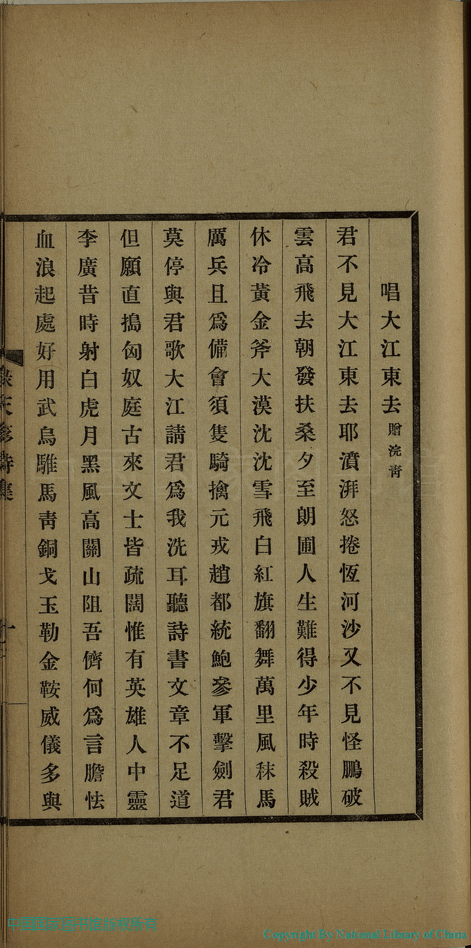 唱大江東去 贈浣青
君不見大江東去耶濆湃怒捲恆河沙又不見怪鵬破
雲高飛去朝發扶桑夕至朗圃人生難得少年時殺賊
休冷黃金斧大漠沈沈雪飛白紅旗翻舞萬里風秣馬
厲兵且爲備會須隻騎擒元戎趙都統鮑參軍擊劍君
莫停與君歌大江請君爲我洗耳聽詩書文章不足道
但願直搗匈奴庭古來文士皆疏闊惟有英雄人中靈
李廣昔時射白虎月黑風高關山阻吾儕何爲言膽怯
血浪起處好用武烏騅馬靑銅戈玉勒金鞍威儀多與
Copyright By National Library of China